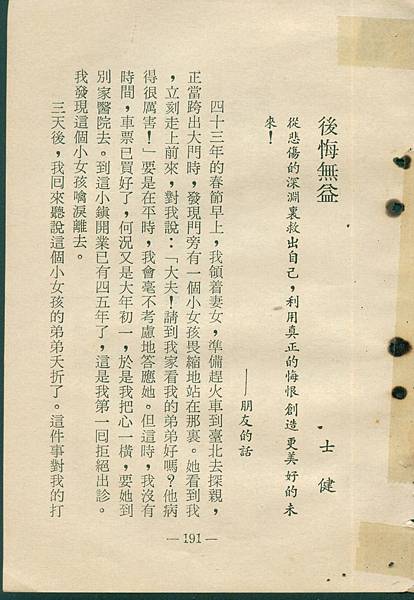 後悔無益
士健
從悲傷的深淵裏救出自己，利用真正的悔恨創造更美好的未
來！
——朋友的話
四十三年的春節早上，我領着妻女，準備趕火車到臺北去探親，
正當跨出大門時，發現門旁有一個小女孩畏縮地站在那裏。她看到我
，立刻走上前來，對我說：「大夫！請到我家看我的弟弟好嗎？他病
得很厲害！」要是在平時，我會毫不考慮地答應她。但這時，我沒有
時間，車票已買好了，何況又是大年初一，於是我把心一橫，要她到
別家醫院去。到這小鎭開業已有四五年了，這是我第一囘拒絕出診。
我發現這個小女孩噙淚離去。
三天後，我囘來聽說這個小女孩的弟弟夭折了。這件事對我的打
—191—